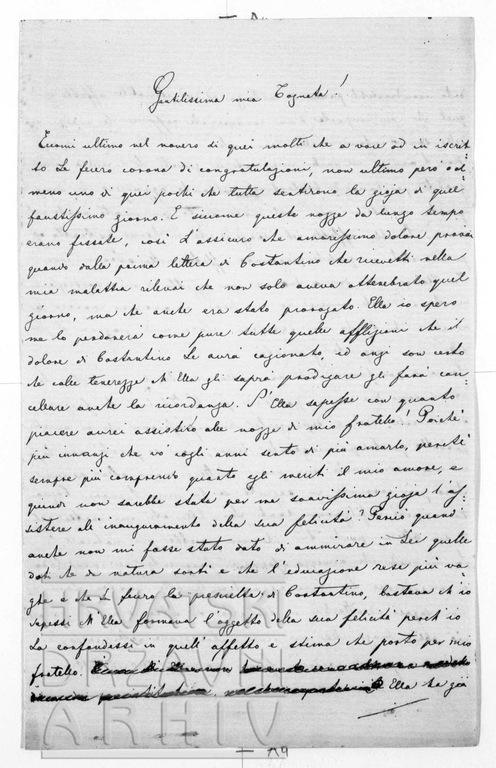 Gentilissima mia Tognetta!
Eccomi ultimo nel novero di quei molti che a voce od in iscrit-
to Le fecero corona di congratulazioni, non ultimo però od al-
meno uno di quei pochi che tutta sentirono la gioja di quel
faustissimo giorno. E siccome queste nozze da lungo tempo
erano fissate, così L'assicuro che amarissimo dolore provai
quando dalla prima lettera di Costantino che ricevetti nella
mia malattia rilevai che non solo aveva ottenebrato quel
giorno, ma che anche era stato prorogato. Ella io spero
me lo perdonerà come pure tutte quelle afflizioni che il
dolore di Costantino Le avrà cagionato, ed anzi son certo
che colle tenerezze ch'Ella gli saprà prodigare gli farà can-
cellare anche la ricordanza. S'Ella sapesse con quanto
piacere avrei assistito alle nozze di mio fratello! Poichè
più innanzi che vo cogli anni sento di più amarlo, perchè
sempre più comprendo quanto egli meriti il mio amore, e
quindi non sarebbe stata per me soavissima gioja l'as-
sistere all'inauguramento della sua felicità? Perciò quand'
anche non mi fosse stato dato di ammirare in Lei quelle
doti che di natura sortì e che l'educazione rese più va-
ghe e che La fecero la prescelta di Costantino, bastava ch'io
sapessi ch'Ella formava l'oggetto della sua felicità perch'io
La confondessi in quell'affetto e stima che porto per mio
fratello. Ella ha già
HRVATSKI
DRŽAVNI
ARHIV